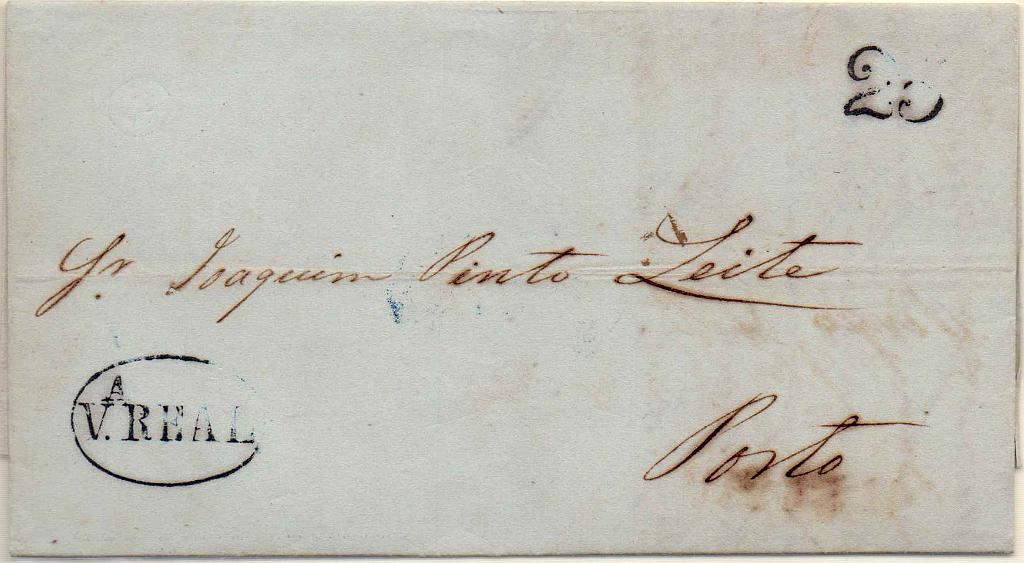 25
Sr. Joaquim Pinto Leite
A
V. REAL
Porto